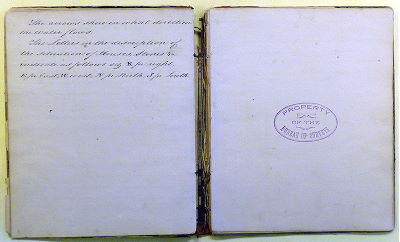 The arrows shew in what direction
the water flows.
The Letters in the description of
the situation of Houses, Stores &c
indicate as follows viz R for right,
E for East, W. west. N. for North. S for South
PROPERTY
OF THE
BUREAU OF SURVEYS